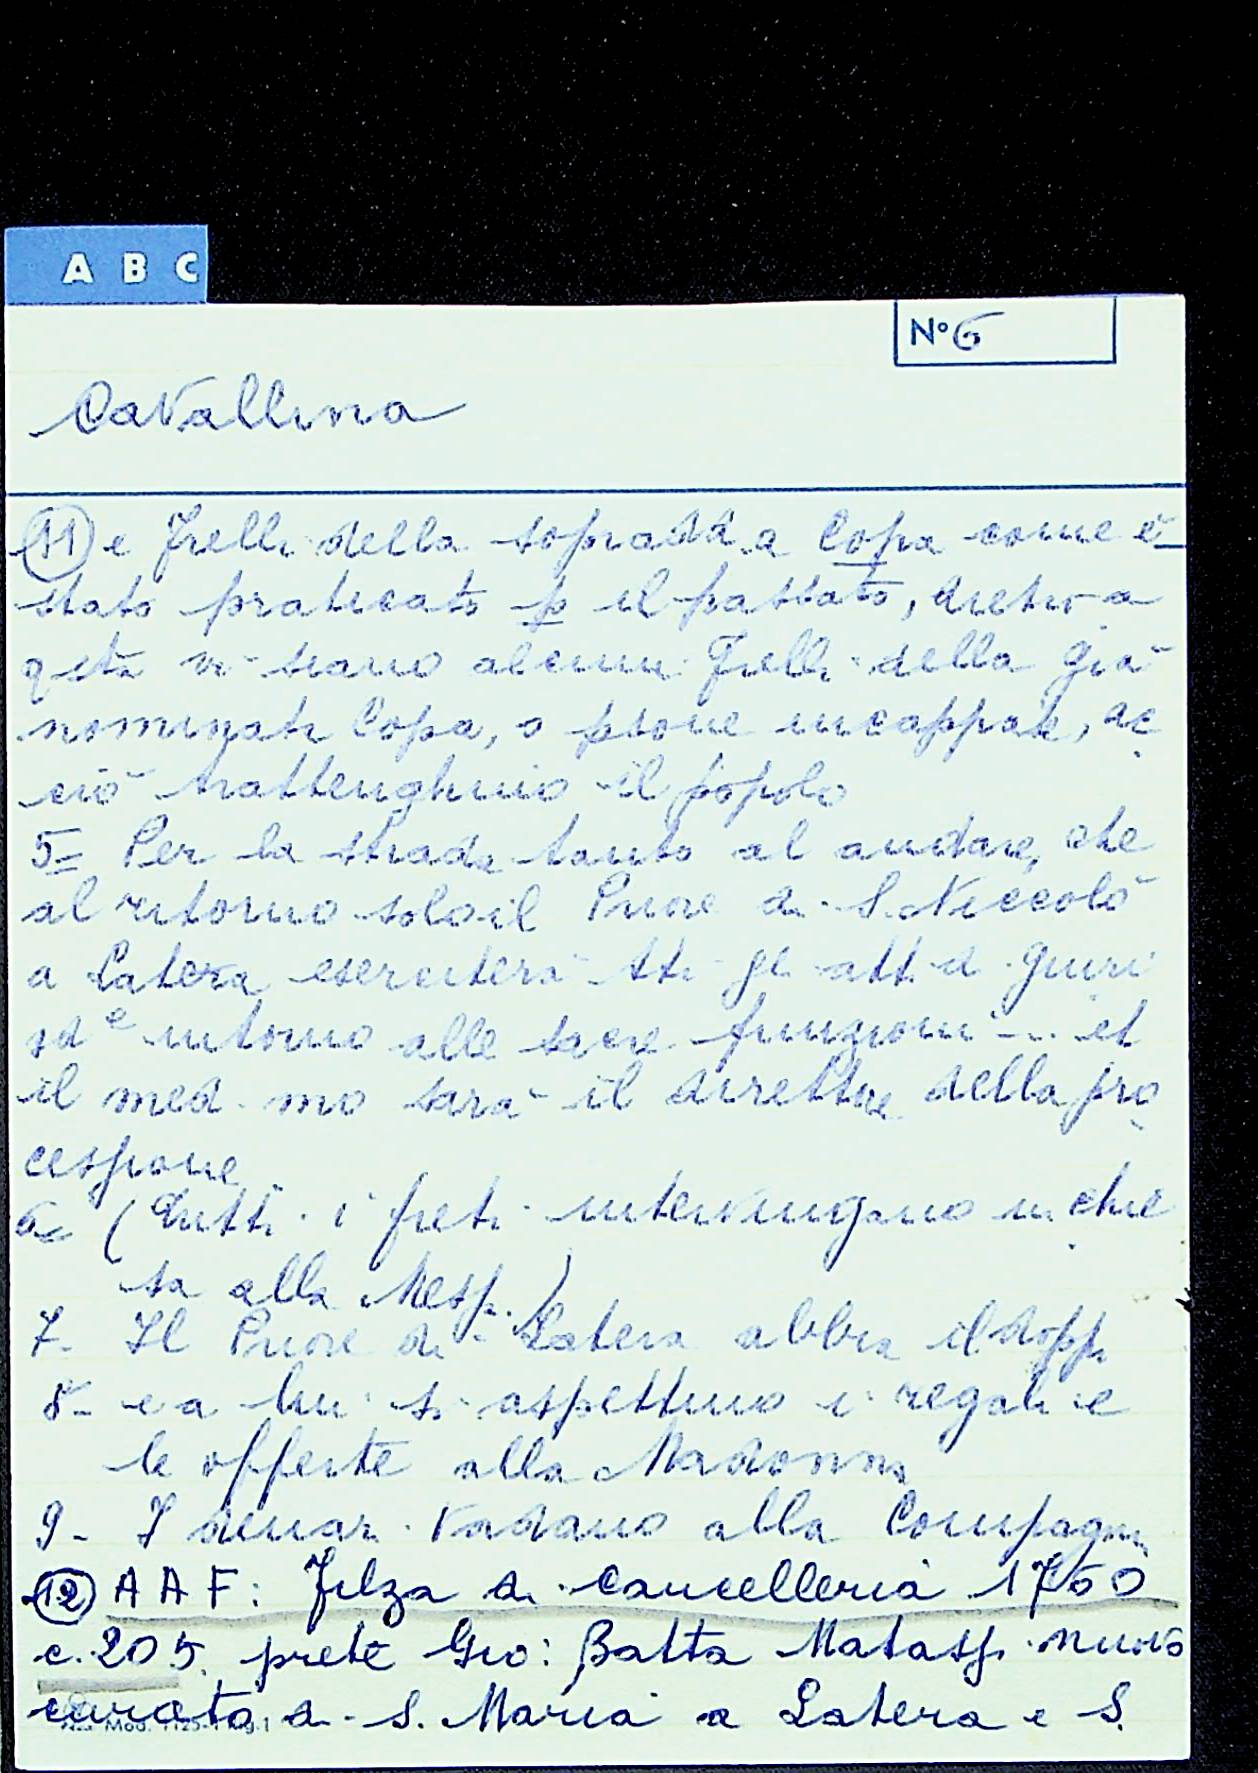 A B C
N° 6
Cavallina
(11) e Frelli della sopradd.a Copa come è
stato praticato p il passato, dietro a
qsta vi siano alcuni Frelli della già
nominata Copa, o psone incappate, ac
ciò trattenghino il popolo
5= Per la strada tanto al andare, che
al ritorno solo il Priore di S. Niccolò
a Latera eserciterà tti gl att. d giuri
sd e intorno alle sacre funzioni ... et
il med. mo sarà il direttore della pro
cessione
6= (Tutti i preti intervengano in chie
sa alla Mess.)
7- Il Priore di Latera abbia il dopp.
8- e a lui si aspettino i regali e
le offerte alla Madonna
9- I denari vadano alla Compagn.
(12) A A F: Filza di cancelleria 1760
c. 205. prete Gio: Batta Matass. nuovo
curato di S. Maria a Latera e S.
Mod.